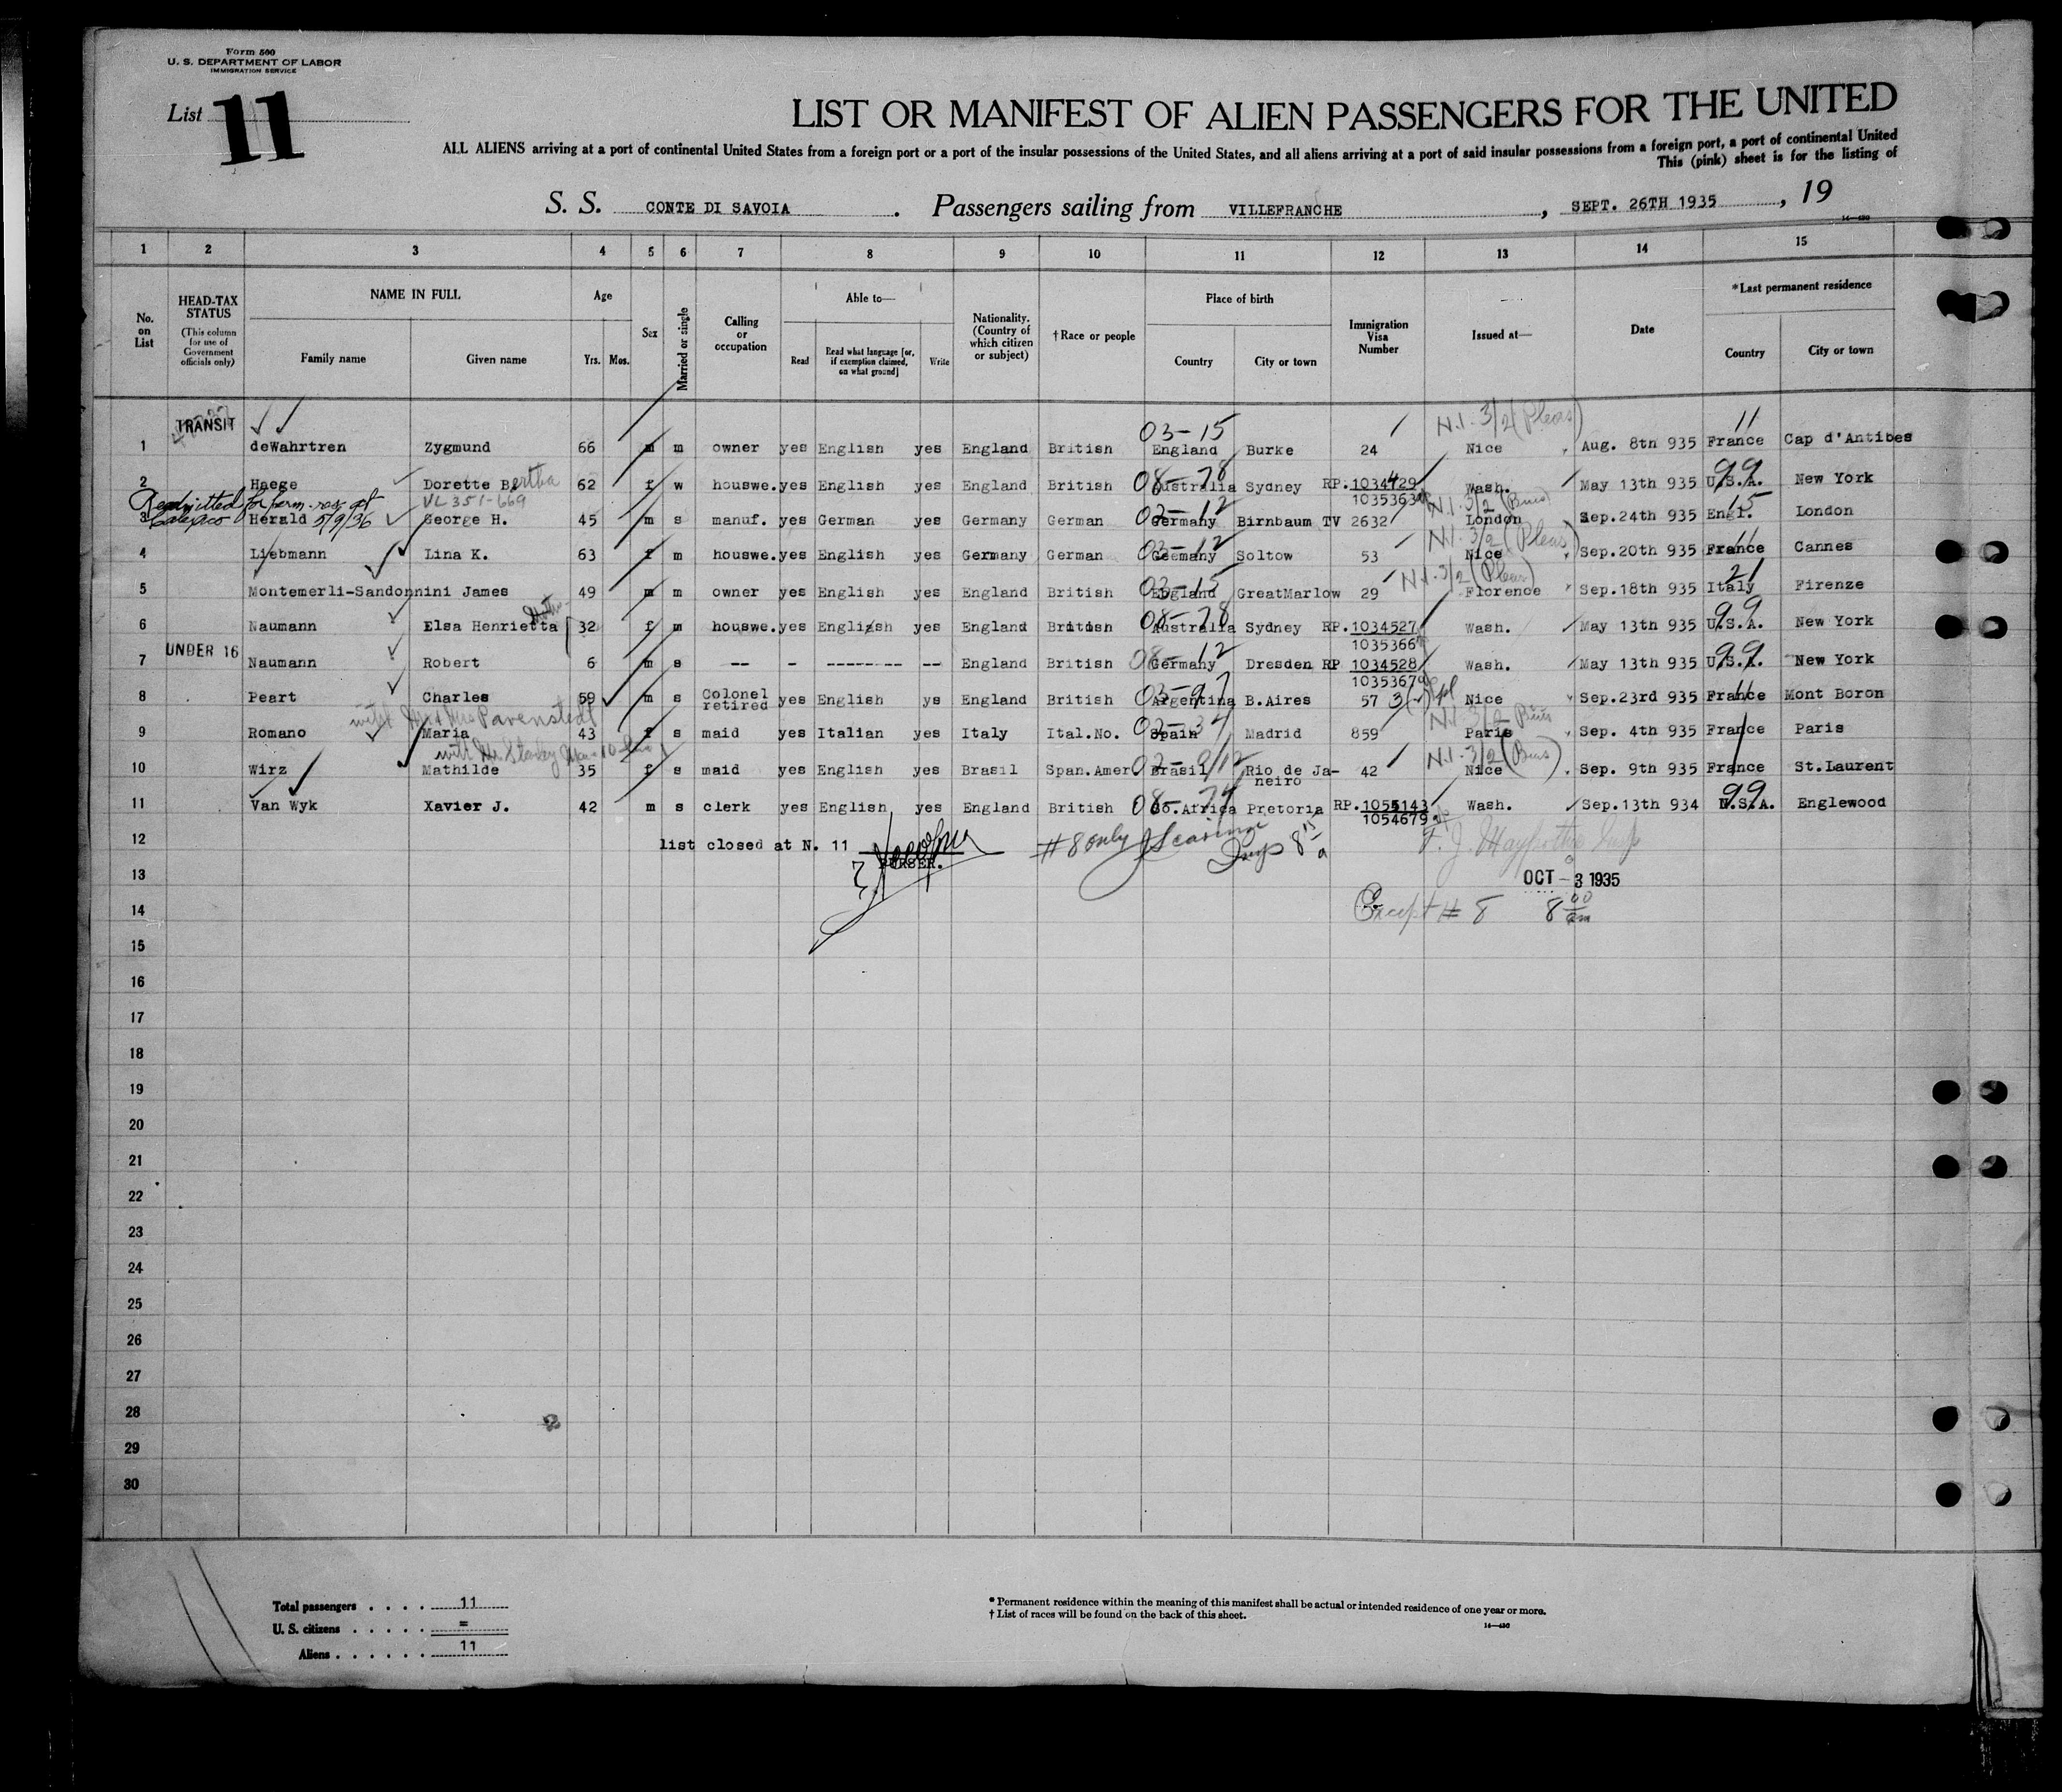 Form 500
U. S. DEPARTMENT OF LABOR
IMMIGRATION SERVICE
List 11
LIST OR MANIFEST OF ALIEN PASSENGERS FOR THE UNITED
ALL ALIENS arriving at a port of continental United States from a foreign port or a port of the insular possessions of the United States, and all aliens arriving at a port of said insular possessions from a foreign port, a port of continental United
This (pink) sheet is for the listing of
S. S. CONTE DI SAVOIA. Passengers sailing from VILLEFRANCHE, SEPT. 26TH 1935, 19
1 2 3 4 5 6 7 8 9 10 11 12 13 14 15
No. on List
HEAD-TAX STATUS
(This column for use of Government officials only)
NAME IN FULL
Family name Given name
Age
Yrs. Mos.
Sex
Married or single
Calling or occupation
Able to—
Read Read what language [or, if exemption claimed, on what ground] Write
Nationality. (Country of which citizen or subject)
†Race or people
Place of birth
Country City or town
Immigration Visa Number
Issued at—
Date
*Last permanent residence
Country City or town
TRANSIT 03-15 N.I. 3/2 (Pleas) 11
1 deWahrtren Zygmund 66 m m owner yes English yes England British England Burke 24 Nice Aug. 8th 935 France Cap d'Antibes
2 Haege Dorette Bertha 62 f w houswe. yes English yes England British 08-78 Australia Sydney RP. 1034729 Wash. May 13th 935 99 U.S.A. New York
1035363
Readmitted for perm. res. at Calexico 5/9/36 VL 351-669 N.I. 3/2 (Busi)
3 Herald George H. 45 m s manuf. yes German yes Germany German 02-12 Germany Birnbaum TV 2632 London Sep.24th 935 15 Engl. London
N.I. 3/2 (Pleas)
4 Liebmann Lina K. 63 f m houswe. yes English yes Germany German 03-12 Geemany Soltow 53 Nice Sep.20th 935 11 France Cannes
N.I. 3/2 (Pleas)
5 Montemerli-Sandonnini James 49 m m owner yes English yes England British 03-15 England GreatMarlow 29 Florence Sep.18th 935 21 Italy Firenze
6 Naumann Elsa Henrietta 32 f m houswe. yes English yes England British 08-78 Australia Sydney RP. 1034527 Wash. May 13th 935 99 U.S.A. New York
1035366
UNDER 16
7 Naumann Robert 6 m s -- - -------- -- England British 08-12 Germany Dresden RP 1034528 Wash. May 13th 935 99 U.S.A. New York
1035367
8 Peart Charles 59 m s Colonel retired yes English ys England British 03-97 Argentina B.Aires 57 3(v) Nice Sep.23rd 935 11 France Mont Boron
with Mr & Mrs Pavenstedt N.I. 3/2 Busi
9 Romano Maria 43 f s maid yes Italian yes Italy Ital.No. 02-34 Spain Madrid 859 Paris Sep. 4th 935 France Paris
with Mr. Stanley N.I. 3/2 (Busi)
10 Wirz Mathilde 35 f s maid yes English yes Brasil Span.Amer. Brasil Rio de Janeiro 42 Nice Sep. 9th 935 France St.Laurent
11 Van Wyk Xavier J. 42 m s clerk yes English yes England British 08-74 So.Africa Pretoria RP.1055143 Wash. Sep.13th 934 99 U.S.A. Englewood
1054679
12 list closed at N. 11 #8 only
PURSER.
13 OCT - 3 1935
14 Except # 8 8 00 am
15
16
17
18
19
20
21
22
23
24
25
26
27
28
29
30
Total passengers . . . . 11
U. S. citizens . . . . . =
Aliens . . . . . . 11
* Permanent residence within the meaning of this manifest shall be actual or intended residence of one year or more.
† List of races will be found on the back of this sheet.
14—430